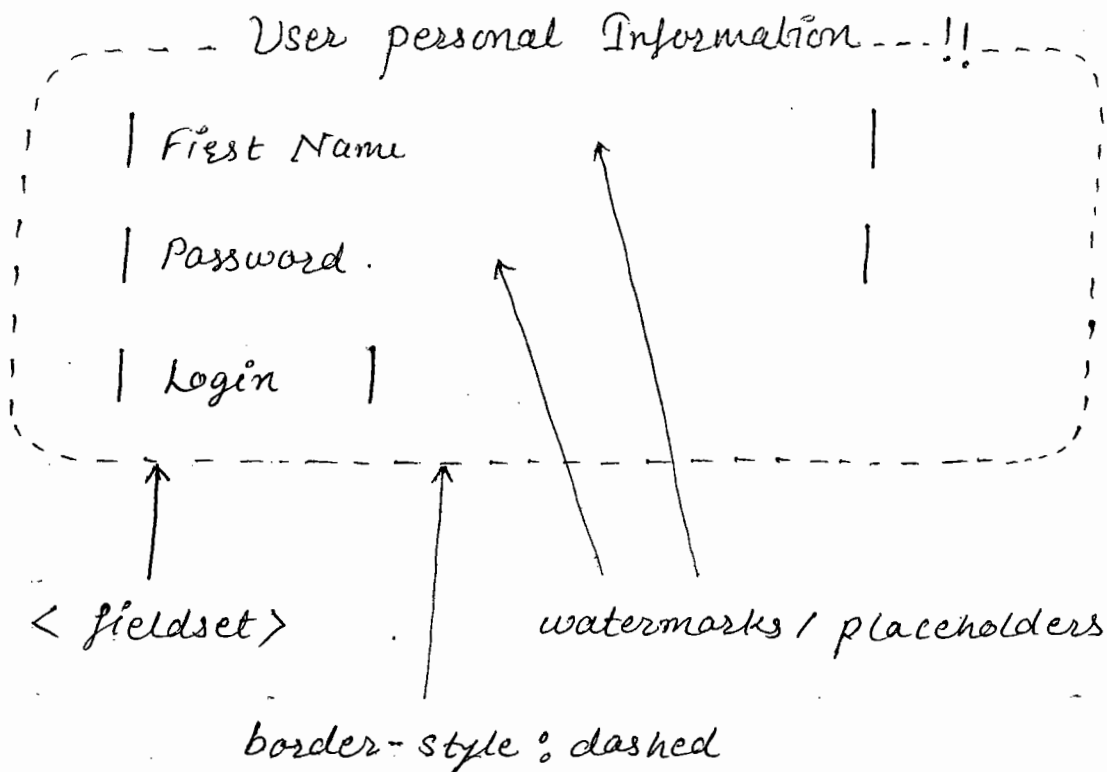 User personal Information !!
First Name
Password.
Login
< fieldset>
watermarks / placeholders
border-style : dashed